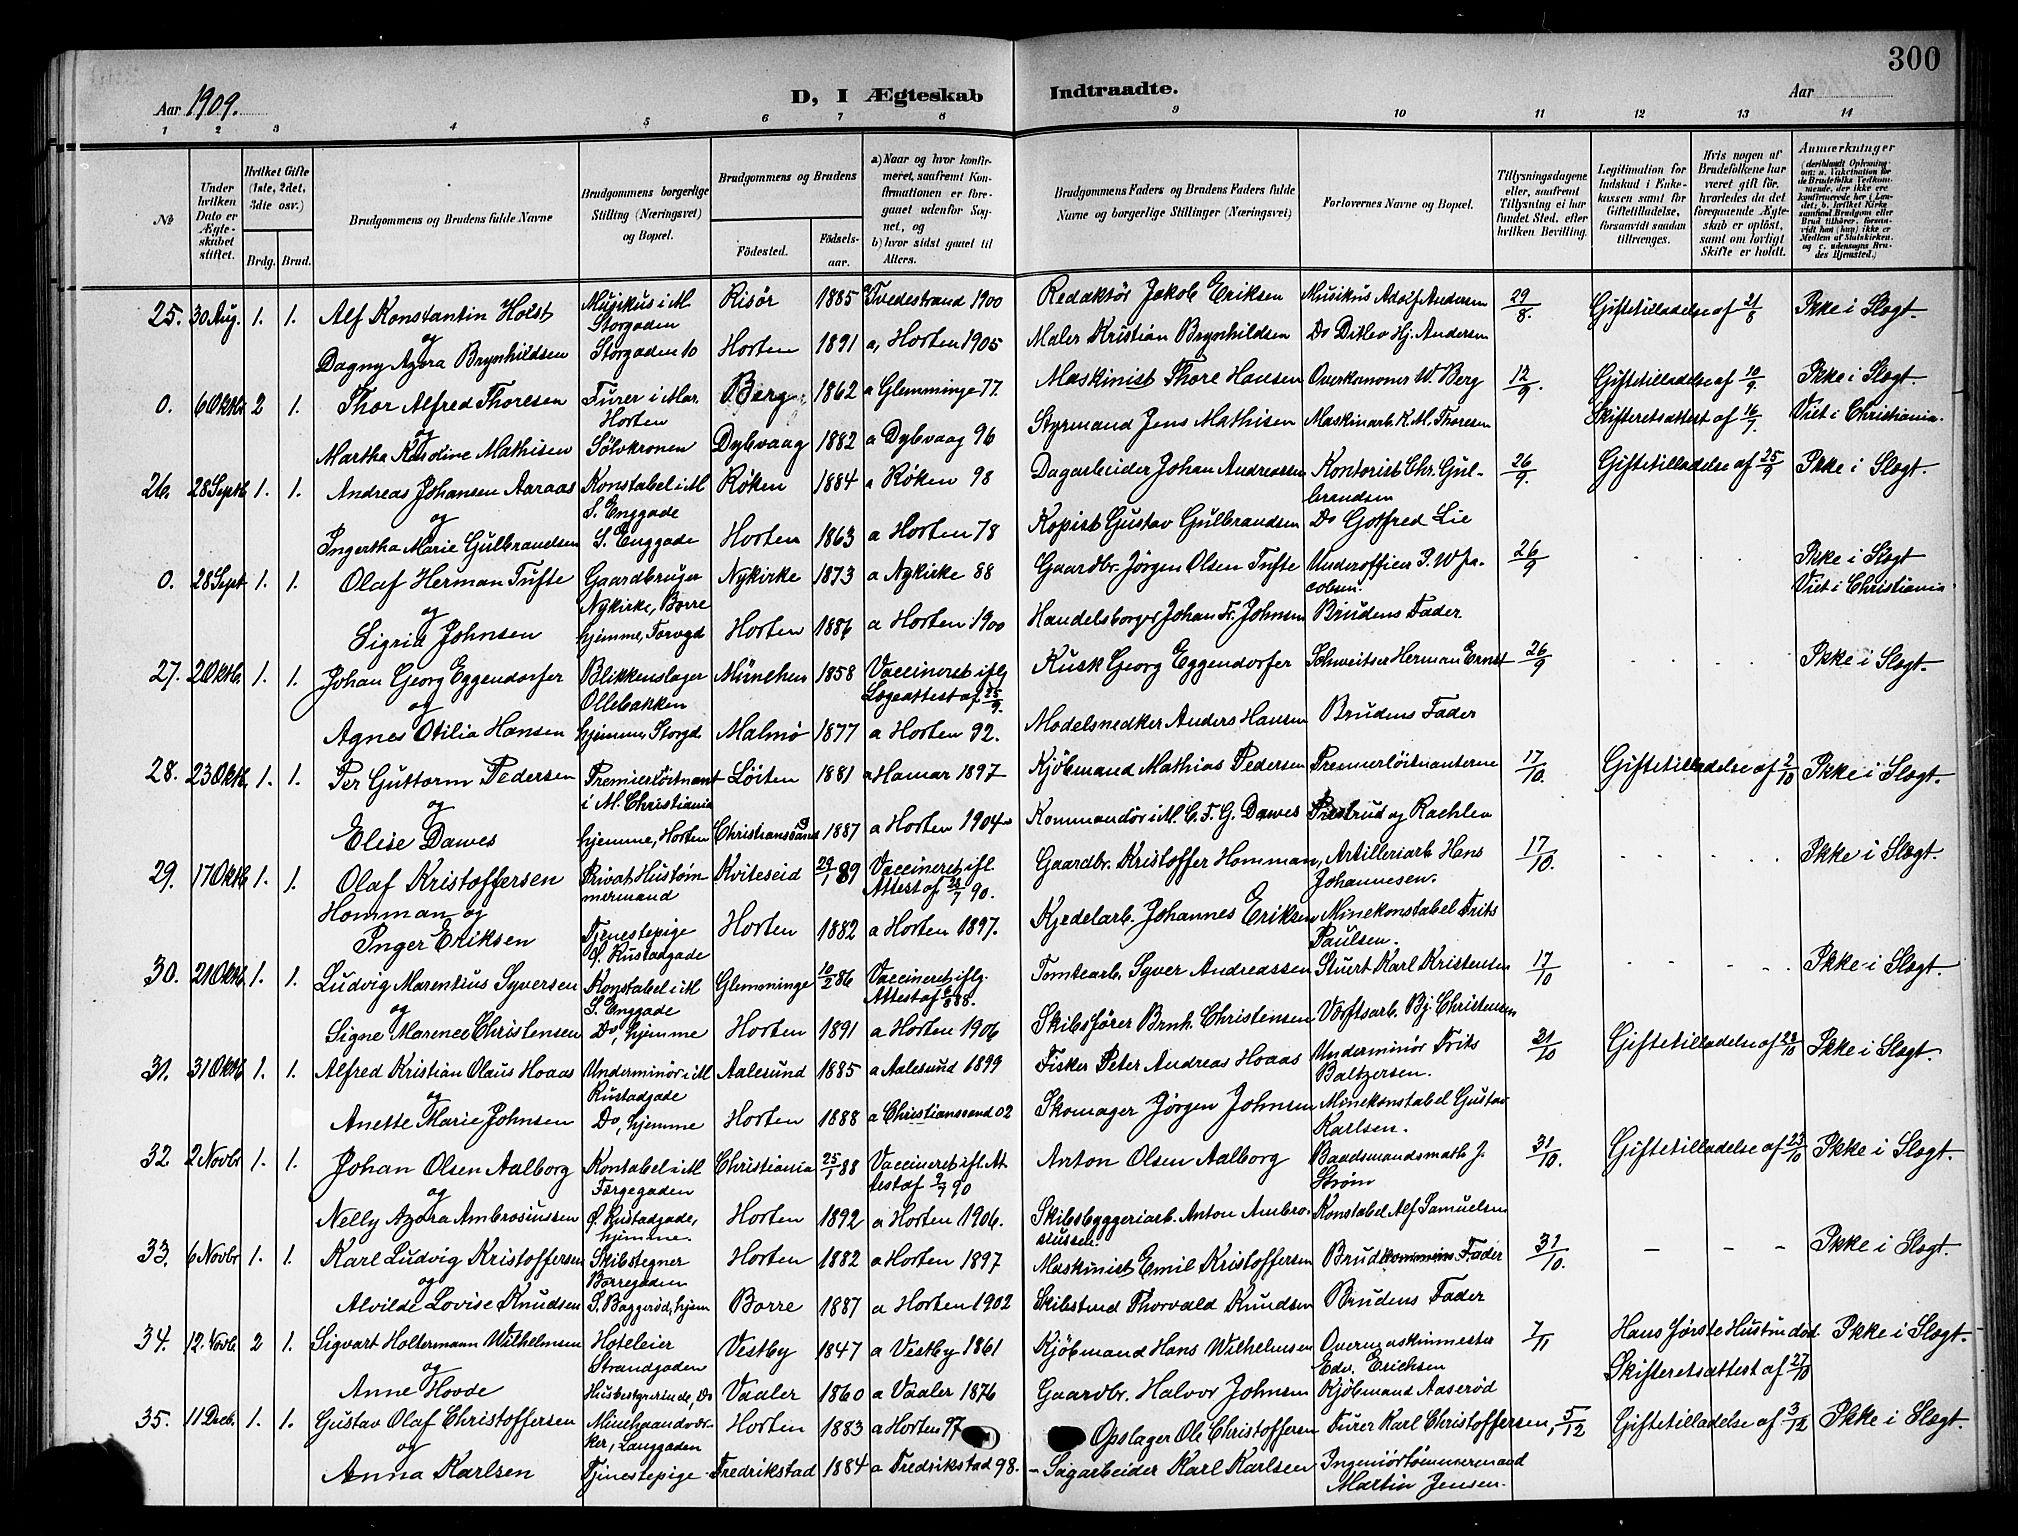 300
Aar 1909.
D, I Ægteskab Indtraadte.
Aar
1 2 3 4 5 6 7 8 9 10 11 12 13 14
No
Under hvilken Dato er Ægteskabet stiftet.
Hvilket Gifte (1ste, 2det, 3die osv.)
Brdg. Brud.
Brudgommens og Brudens fulde Navne
Brudgommens borgerlige Stilling (Næringsvei) og Bopæl.
Brudgommens og Brudens
Fødested. Fødselsaar.
a) Naar og hvor konfirmeret, saafremt Konfirmationen er foregaaet udenfor Sognet, og
b) hvor sidst gaaet til Alters.
Brudgommens Faders og Brudens Faders fulde Navne og borgerlige Stillinger (Næringsvei)
Forlovernes Navne og Bopæl.
Tillysningsdagene eller, saafremt Tillysning ei har fundet Sted, efter hvilken Bevilling.
Legitimation for Indskud i Enkekassen samt for Giftetilladelse, forsaavidt saadan tiltrænges.
Hvis nogen af Brudefolkene har været gift før, hvorledes da det foregaaende Ægteskab er opløst, samt om lovligt Skifte er holdt.
Anmærkninger
25. 30 Aug. 1. 1. Alf Konstantin Holst Musikus i M. Storgaden Risør 1885 a Tvedestrand 1900 Redaktör Jakob Eriksen Musikus Adolf Andersen 29/8. Giftetilladelse af 21/8 Ikke i Slægt.
og
Dagny Azora Brynhildsen Storgaden 10 Horten 1891 a, Horten 1905 Maler Kristian Brynhildsen Do Ditlev Hj. Andersen
0. 6 Oktbr 2 1. Thor Alfred Thoresen Furer i Mar. Horten Berg 1862 a Glemminge 77. Maskinist Thore Hansen Overkanoner W. Berg 12/9. Giftetilladelse af 10/9 Ikke i Slægt.
Skifteretsattest af 16/7 Viet i Christiania.
og
Martha Karoline Mathisen Sölvkronen Dybvaag 1882 a Dybvaag 96 Styrmand Jens Mathisen Maskinarb. K. M. Thoresen
26. 28 Septb. 1. 1. Andreas Johansen Aaraas Konstabel i M S. Enggade Røken 1884 a Røken 98 Dagarbeider Johan Andreassen Kontorist Chr. Gulbrandsen 26/9. Giftetilladelse af 25/9 Ikke i Slægt.
og
Ingertha Marie Gulbrandsen S. Enggade Horten 1863 a Horten 78 Kopist Gustav Gulbrandsen Do Gotfred Lie
0. 28 Sept 1. 1. Olaf Herman Tufte Gaardbruger Nykirke, Borre Nykirke 1873 a Nykirke 88 Gaardbr. Jørgen Olsen Tufte Underofficer I. W. Jacobsen. 26/9 Ikke i Slægt
Viet i Christiania
og
Sigrid Johnsen hjemme, Torvgd Horten 1886 a Horten 1900 Handelsborger Johan Fr. Johnsen Brudens Fader.
27. 2 Oktb. 1. 1. Johan Georg Eggendorfer Blikkenslager Ollebakken München 1858 Vaccineret iflg Lægeattest af 25/9. Kusk Georg Eggendorfer Schweitser Herman Ernst 26/9 Ikke i Slægt.
og
Agnes Otilia Hansen hjemme, Storgd. Malmö 1877 a Horten 92. Modelsnedker Anders Hansen Brudens Fader
28. 23 Oktb. 1. 1. Per Guttorm Pedersen Premierlöitnant i M. Christiania Löiten 1881 a Hamar 1897 Kjöbmand Mathias Pedersen Premierlöitnanterne 17/10. Giftetilladelse af 2/10 Ikke i Slægt.
og
Elise Dawes hjemme, Horten Christianssand 1887 a Horten 1904 Kommandör i M. C. F. G. Dawes Prestrud og Rachlew
29. 17 Oktb 1. 1. Olaf Kristoffersen Privat Hustømmermand Kviteseid 29/1 89 Vaccineret ifl. Attest af 28/7 90. Gaardbr. Kristoffer Homman, Artilleriarb. Hans Johannesen. 17/10. Ikke i Slægt.
Homman og
Inger Eriksen Tjenestepige Ö. Rustadgade Horten 1882 a Horten 1897. Kjedelarb. Johannes Eriksen Minekonstabel Frits Paulsen.
30. 21 Oktb 1. 1. Ludvig Marentius Syversen Konstabel i M S. Enggade Glemminge 10/2 86 Vaccineret iflg. Attest af 88. Tomtearb. Syver Andreassen Stuert Karl Kristensen 17/10 Ikke i Slægt.
og
Signe Marence Christensen Do, hjemme Horten 1891 a Horten 1906 Skibsfører Brnh. Christensen Værftsarb. Bj. Christensen
31. 31 Oktb 1. 1. Alfred Kristian Olaus Hoaas Underminör i M Rustadgade Aalesund 1885 a Aalesund 1899 Fisker Peter Andreas Hoaas Underminör Frits Baltzersen. 31/10 Giftetilladelse af 22/10 Ikke i Slægt.
og
Anette Marie Johnsen Do, hjemme Horten 1888 a Christianssand 02 Skomager Jörgen Johnsen Minekonstabel Gustav Karlsen.
32. 2 Novbr 1. 1. Johan Olsen Aalborg Kontabel i M Færgegaden Christiania 25/1 88 Vaccineret ifl. Attest af 2/7 90 Anton Olsen Aalborg Baadsmandsmath J. Ström 31/10. Giftetilladelse af 23/10 Ikke i Slægt.
og
Nelly Azora Ambrosiussen Ö. Rustadgade, hjemme. Horten 1892 a Horten 1906. Skibsbyggeriarb. Anton Ambrosiussen. Konstabel Alf Samuelsen
33. 6 Novbr 1. 1. Karl Ludvig Kristoffersen Skibstegner Borregaden Horten 1882 a Horten 1897 Maskinist Emil Kristoffersen Brudkommens Fader 31/10. Ikke i Slægt.
og
Alvilde Lovise Knudsen S. Baggerød, hjem Borre 1887 a Horten 1902 Skibstmd Thorvald Knudsen Brudens Fader
34. 12. Novb. 2 1. Sigvart Holtermann Wilhelmsen Hoteleier Strandgaden Vestby 1847 a Vestby 1861 Kjöbmand Hans Wilhelmsen Overmaskinmester Edv. Erichsen 7/11 Hans förste Hustru död. Ikke i Slægt.
Skifteretsattest af 27/10
og
Anne Hovde Husbestyrerinde, Do Vaaler 1860 a Vaaler 1876 Gaardbr. Halvor Johnsen Kjöbmand Aaseröd
35. 11 Decb. 1. 1. Gustav Olaf Christoffersen Minehaandværker, Langgaden Horten 1883 a Horten 97 Opslager Ole Christoffersen Furer Karl Christoffersen, 5/12 Giftetilladelse af 3/12 Ikke i Slægt.
og
Anna Karlsen Tjenestepige Fredrikstad 1884 a Fredrikstad 98. Sagarbeider Karl Karlsen Ingeniörtömmermand Martin Jensen.